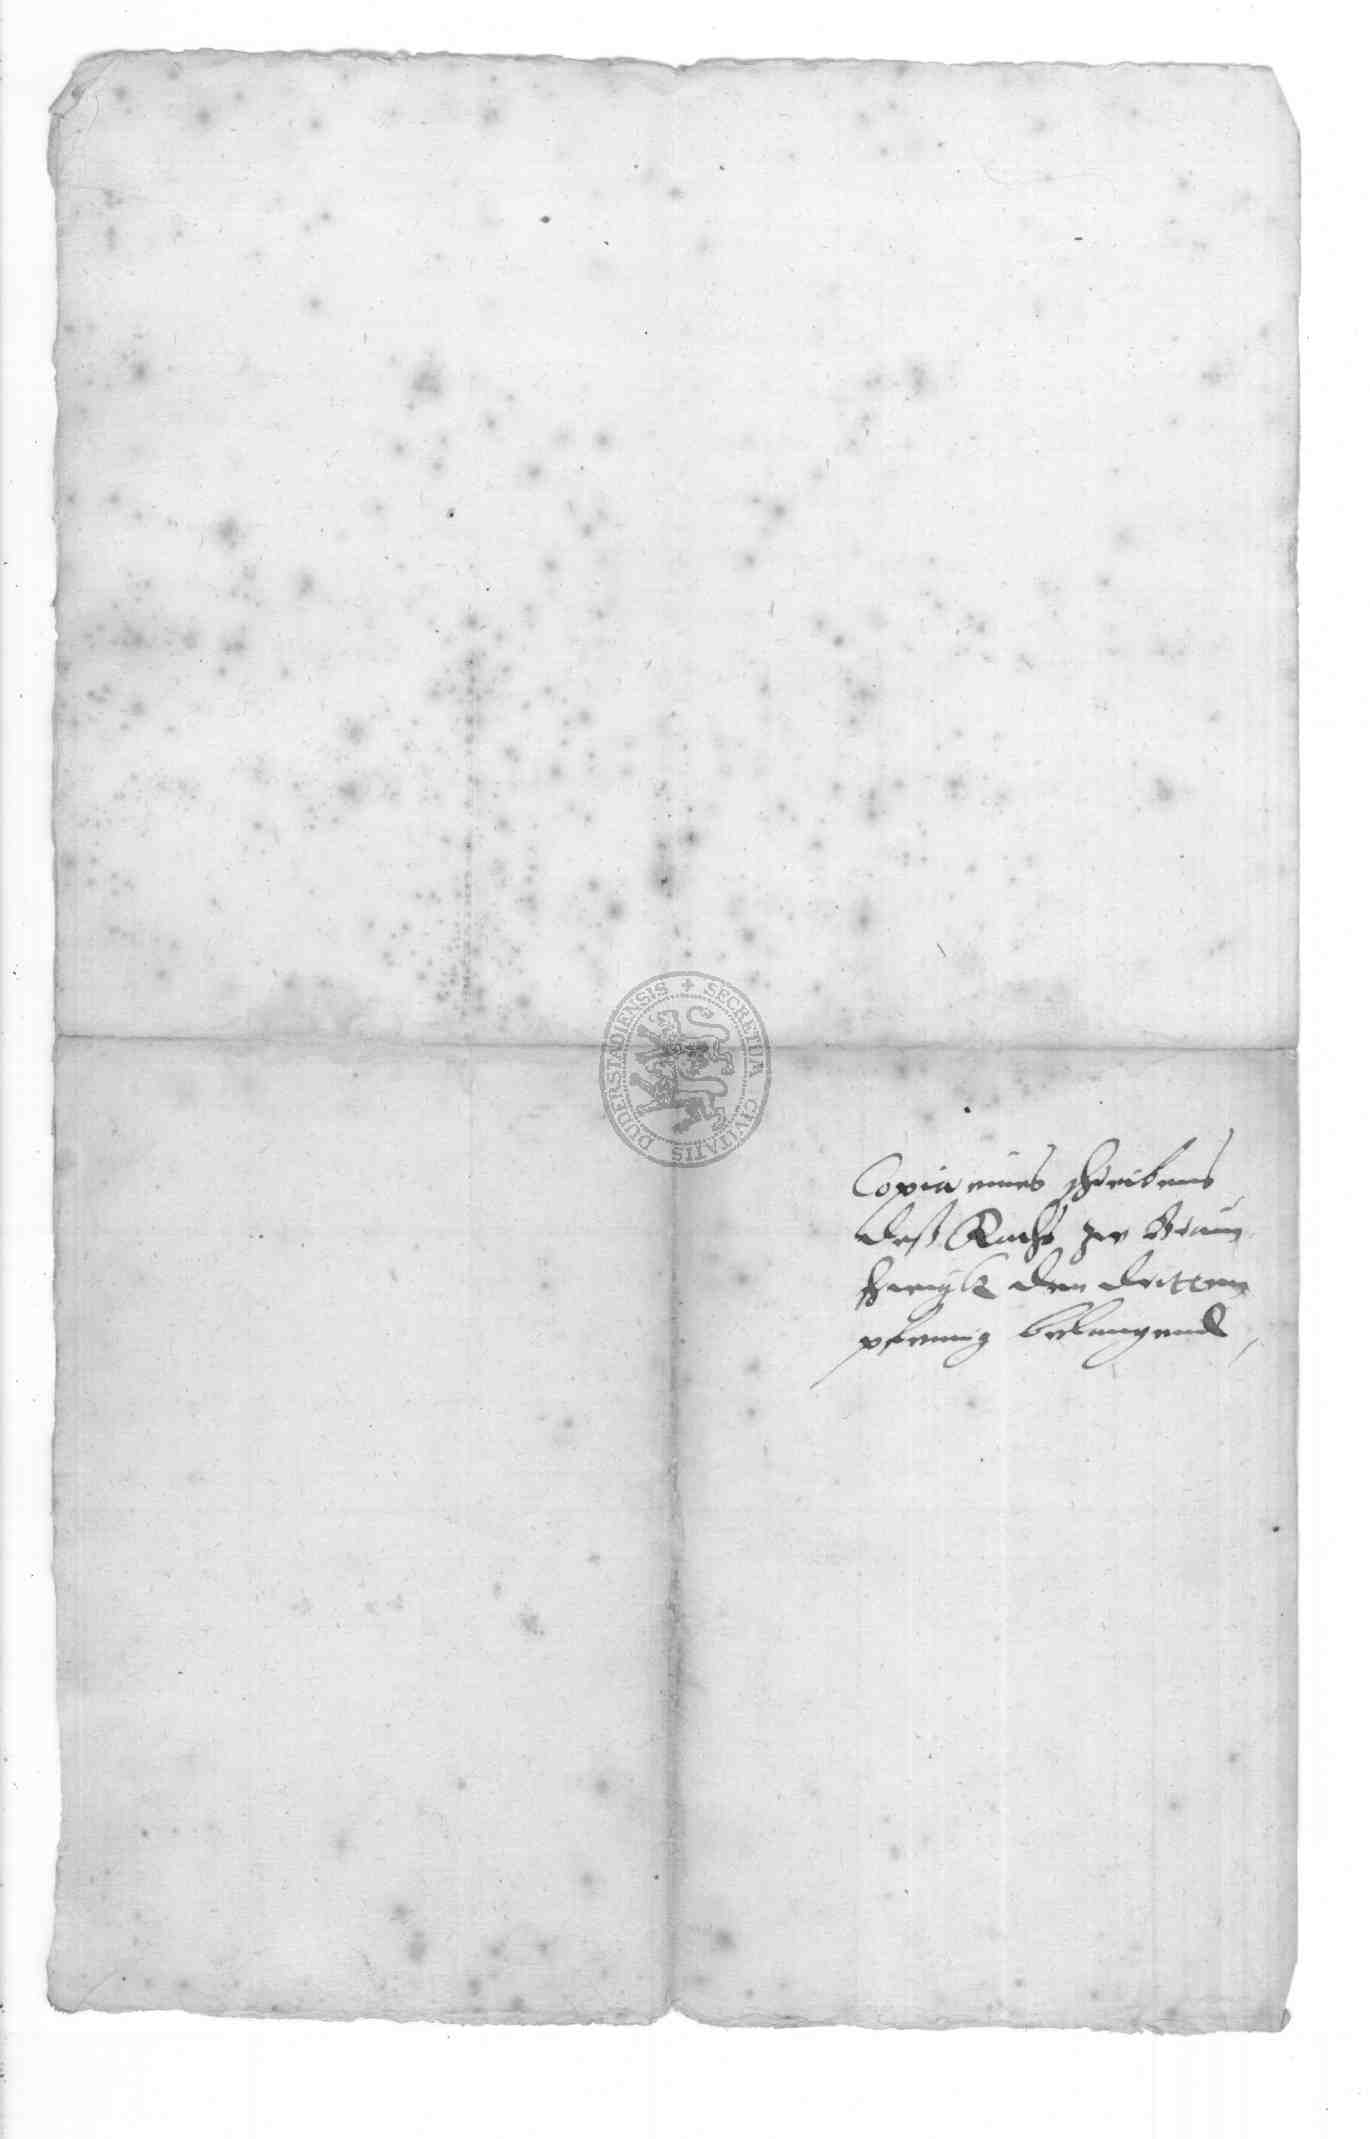 Copia eines schreibens
deß Raths zu Braun
schweigk den dritten
pfennig belangend,
SECRETUM CIVITATIS DUDERSTADIENSIS